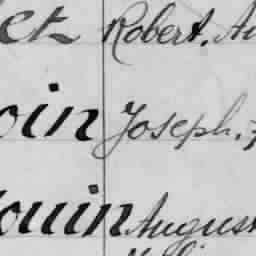 et Robert. Au
oin Joseph.
ouin August